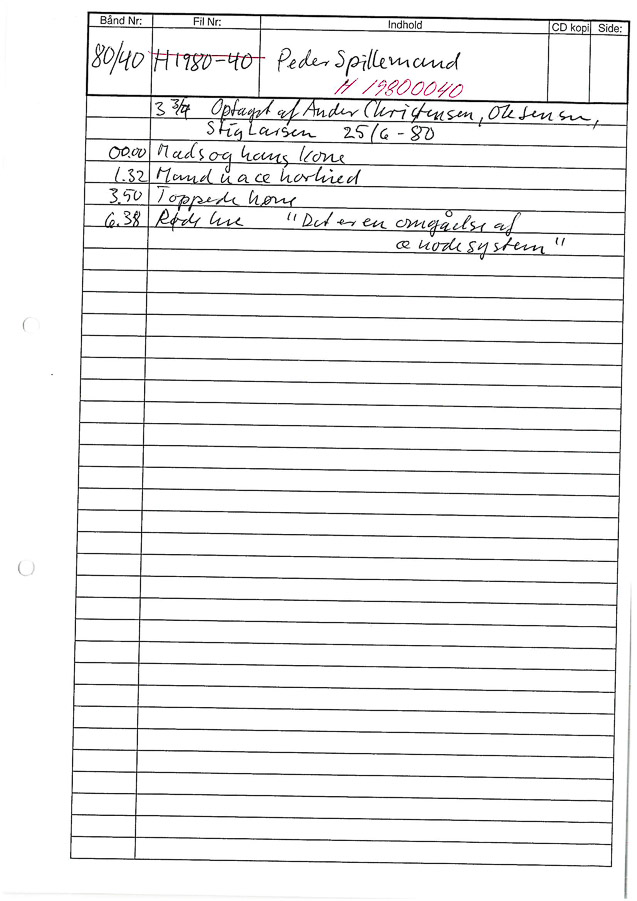 Bånd Nr: Fil Nr: Indhold CD kopi Side:
80/40 H1980-40 Peder Spillemand
H 19800040
3 3/4 Optaget af Ander Christensen,
Stig Larsen 25/6-80
00.00 Mads og hans kone
1.32 Mand
3.50 Toppede høne
6.38 "Det er en omgåelse af
æ nodesystem"